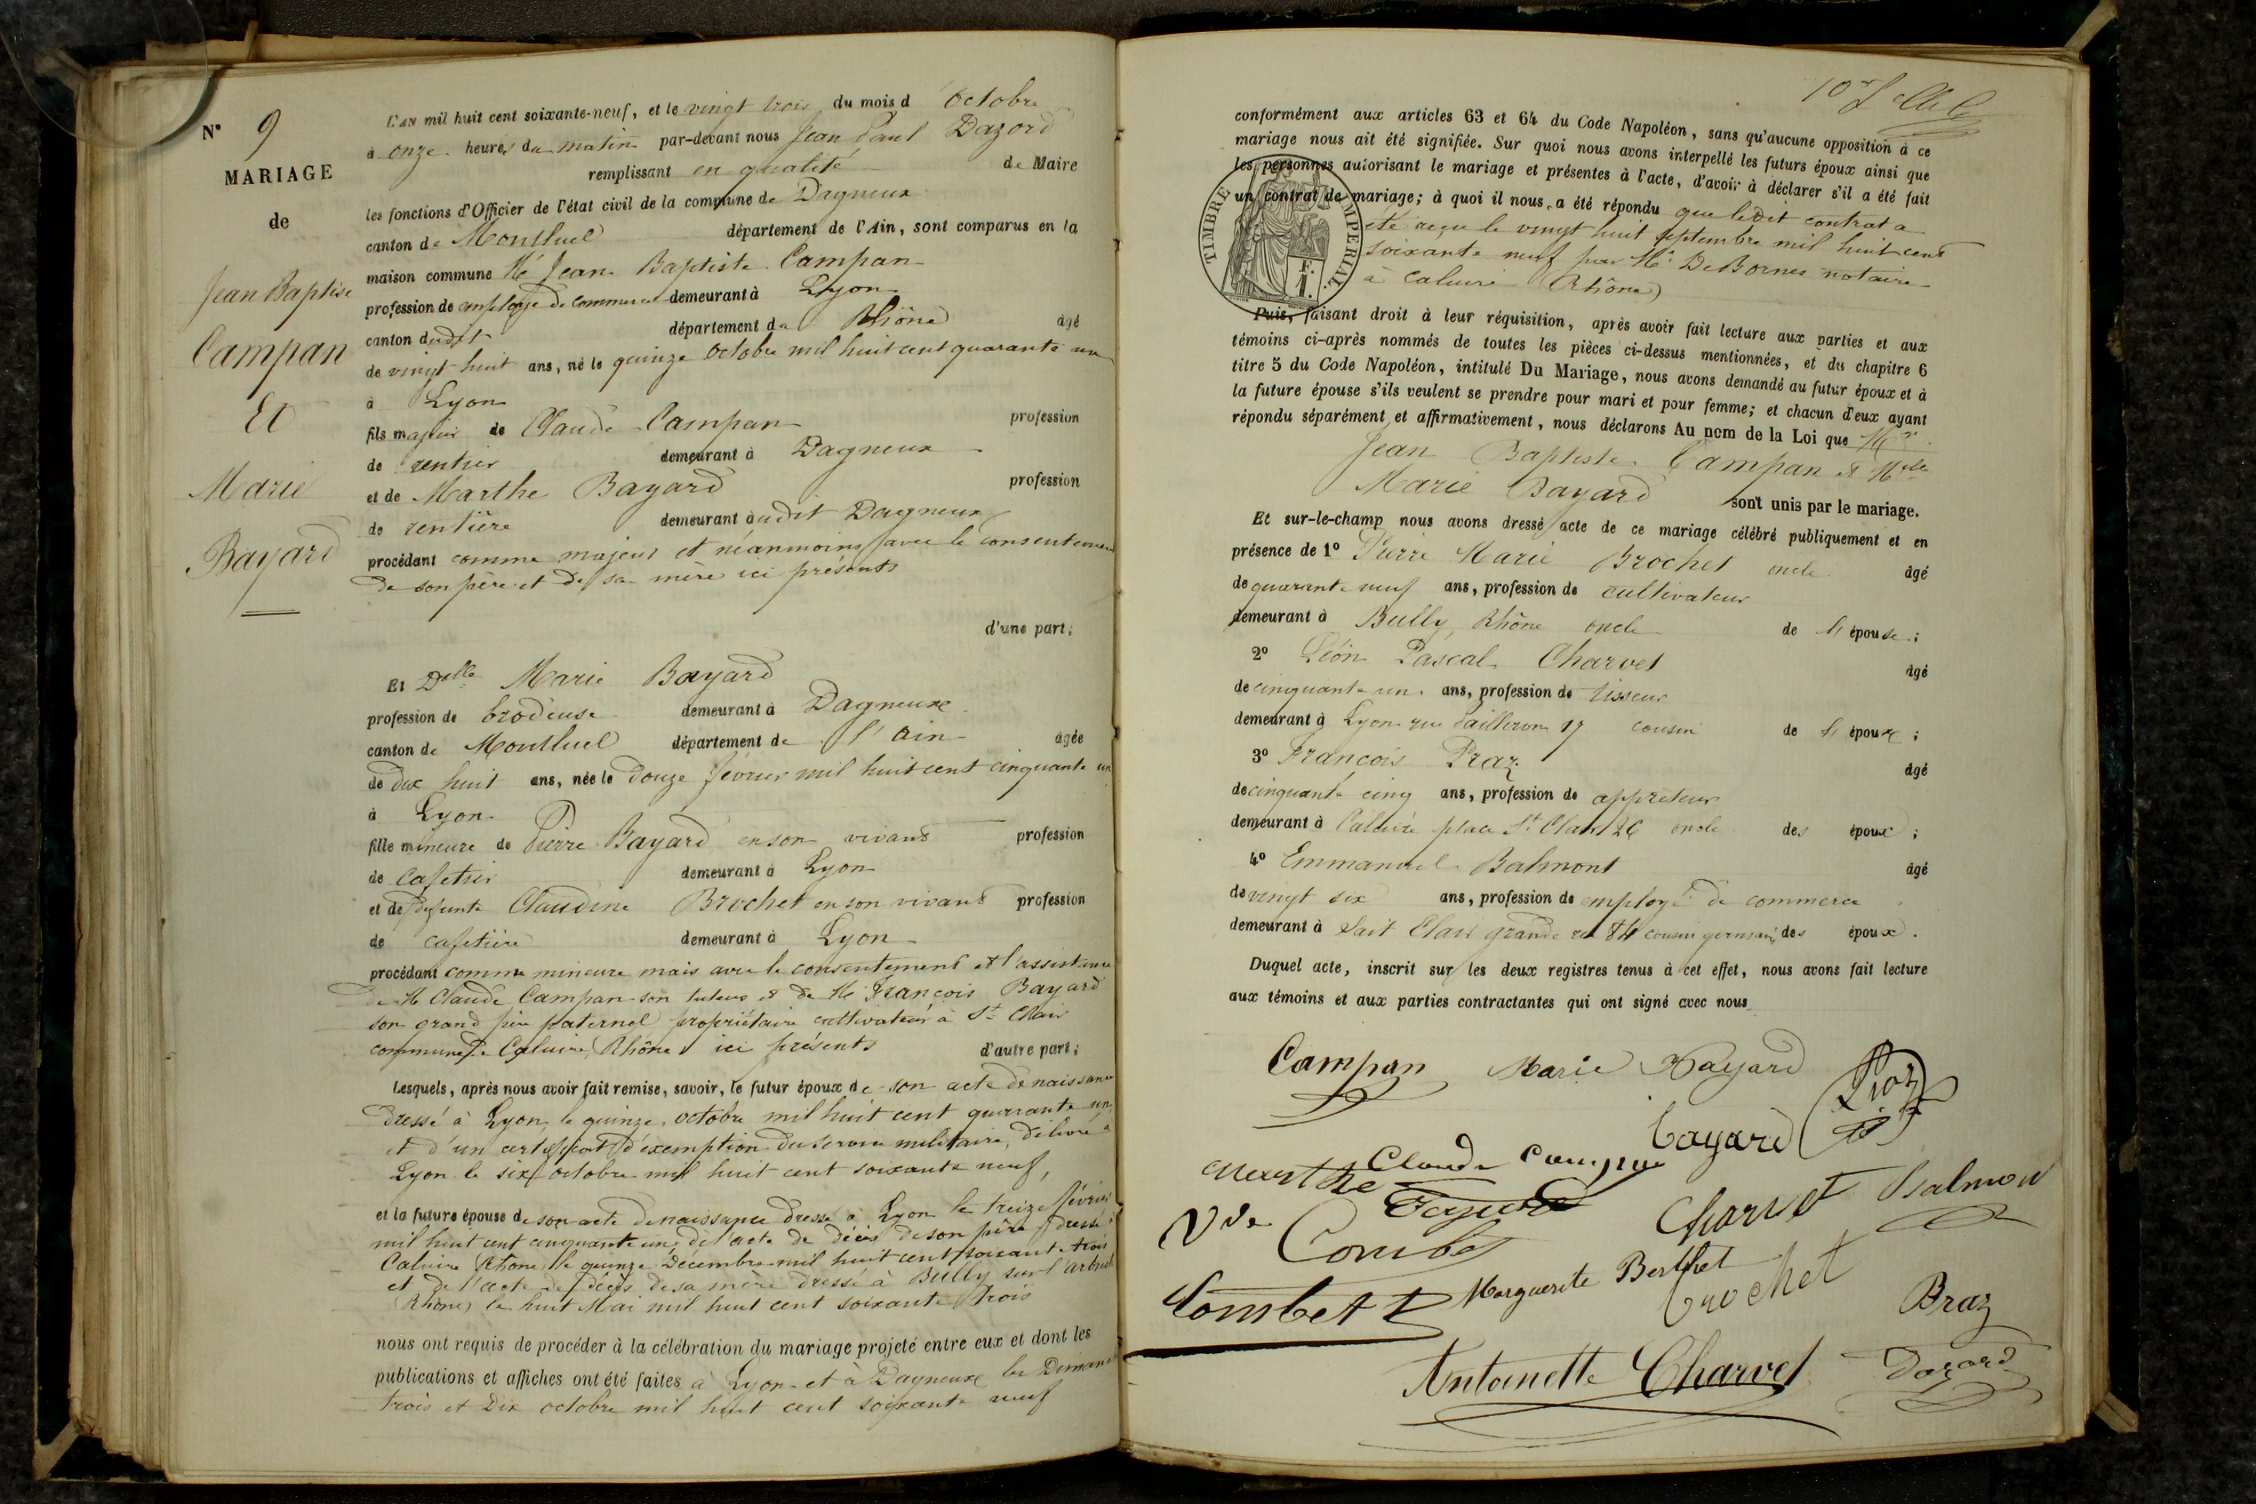 N° 9
MARIAGE
de
Jean Baptiste
Campan
Et
Marie
Bayard
L'AN mil huit cent soixante-neuf, et le vingt trois du mois d'Octobre
à onze heures du matin par-devant nous Jean Paul Dazord
remplissant en qualité de Maire
les fonctions d'Officier de l'état civil de la commune de Dagneux
canton de Montluel département de l'Ain, sont comparus en la
maison commune Mr Jean Baptiste Campan
profession de employé de commerce demeurant à Lyon
canton dudit département du Rhône âgé
de vingt huit ans, né le quinze Octobre mil huit cent quarante un
à Lyon
fils majeur de Claude Campan profession
de rentier demeurant à Dagneux
et de Marthe Bayard profession
de rentière demeurant audit Dagneux
procédant comme majeur et néanmoins avec le consentement
de son père et de sa mère ici présents
d'une part;
Et Delle Marie Bayard
profession de brodeuse demeurant à Dagneux
canton de Montluel département de l'Ain âgée
de dix huit ans, née le douze février mil huit cent cinquante un
à Lyon
fille mineure de Pierre Bayard en son vivant profession
de cafetier demeurant à Lyon
et de défunte Claudine Brochet en son vivant profession
de cafetière demeurant à Lyon
procédant comme mineure mais avec le consentement et l'assistance
de Mr Claude Campan son tuteur et de Mr François Bayard
son grand père paternel propriétaire cultivateur à St Clair
commune de Caluire (Rhône) ici présents d'autre part;
Lesquels, après nous avoir fait remise, savoir, le futur époux de son acte de naissance
dressé à Lyon, le quinze octobre mil huit cent quarante un
et d'un certificat d'exemption du service militaire, délivré à
Lyon le six octobre mil huit cent soixante neuf,
et la future épouse de son acte de naissance dressé à Lyon le treize février
mil huit cent cinquante un, de l'acte de décès de son père dressé à
Caluire (Rhône) le quinze Décembre mil huit cent soixante trois
et de l'acte de décès de sa mère dressé à Bully sur l'Arbresle
(Rhône) le huit Mai mil huit cent soixante trois
nous ont requis de procéder à la célébration du mariage projeté entre eux et dont les
publications et affiches ont été faites à Lyon et à Dagneux les Dimanches
trois et Dix octobre mil huit cent soixante neuf
conformément aux articles 63 et 64 du Code Napoléon, sans qu'aucune opposition à ce
mariage nous ait été signifiée. Sur quoi nous avons interpellé les futurs époux ainsi que
les personnes autorisant le mariage et présentes à l'acte, d'avoir à déclarer s'il a été fait
un contrat de mariage; à quoi il nous a été répondu que ledit contrat a
été reçu le vingt huit septembre mil huit cent
soixante neuf par Me De Bornes notaire
à Caluire (Rhône)
TIMBRE IMPERIAL
F.
1.
Puis, faisant droit à leur réquisition, après avoir fait lecture aux parties et aux
témoins ci-après nommés de toutes les pièces ci-dessus mentionnées, et du chapitre 6
titre 5 du Code Napoléon, intitulé Du Mariage, nous avons demandé au futur époux et à
la future épouse s'ils veulent se prendre pour mari et pour femme; et chacun d'eux ayant
répondu séparément et affirmativement, nous déclarons Au nom de la Loi que Mr
Jean Baptiste Campan et Melle
Marie Bayard sont unis par le mariage.
Et sur-le-champ nous avons dressé acte de ce mariage célébré publiquement et en
présence de 1° Pierre Marie Brochet oncle âgé
de quarante neuf ans, profession de cultivateur
demeurant à Bully, Rhône oncle de l'épouse;
2° Léon Pascal Charvet âgé
de cinquante un ans, profession de tisseur
demeurant à Lyon rue Tailleron 17 cousin de l'époux;
3° François Praz âgé
de cinquante cinq ans, profession de appréteur
demeurant à Caluire place St Clair 26 oncle des époux;
4° Emmanuel Balmont âgé
de vingt six ans, profession de employé de commerce
demeurant à Sait Clair grande rue 84 cousin germain des époux.
Duquel acte, inscrit sur les deux registres tenus à cet effet, nous avons fait lecture
aux témoins et aux parties contractantes qui ont signé avec nous
Campan Marie Bayard
Bayard
Marthe Claude Campan
Bayard
Charvet Balmon
Vve Combet
Combet
Marguerite Berthet
Brochet
Braz
Antoinette Charvet Dazord